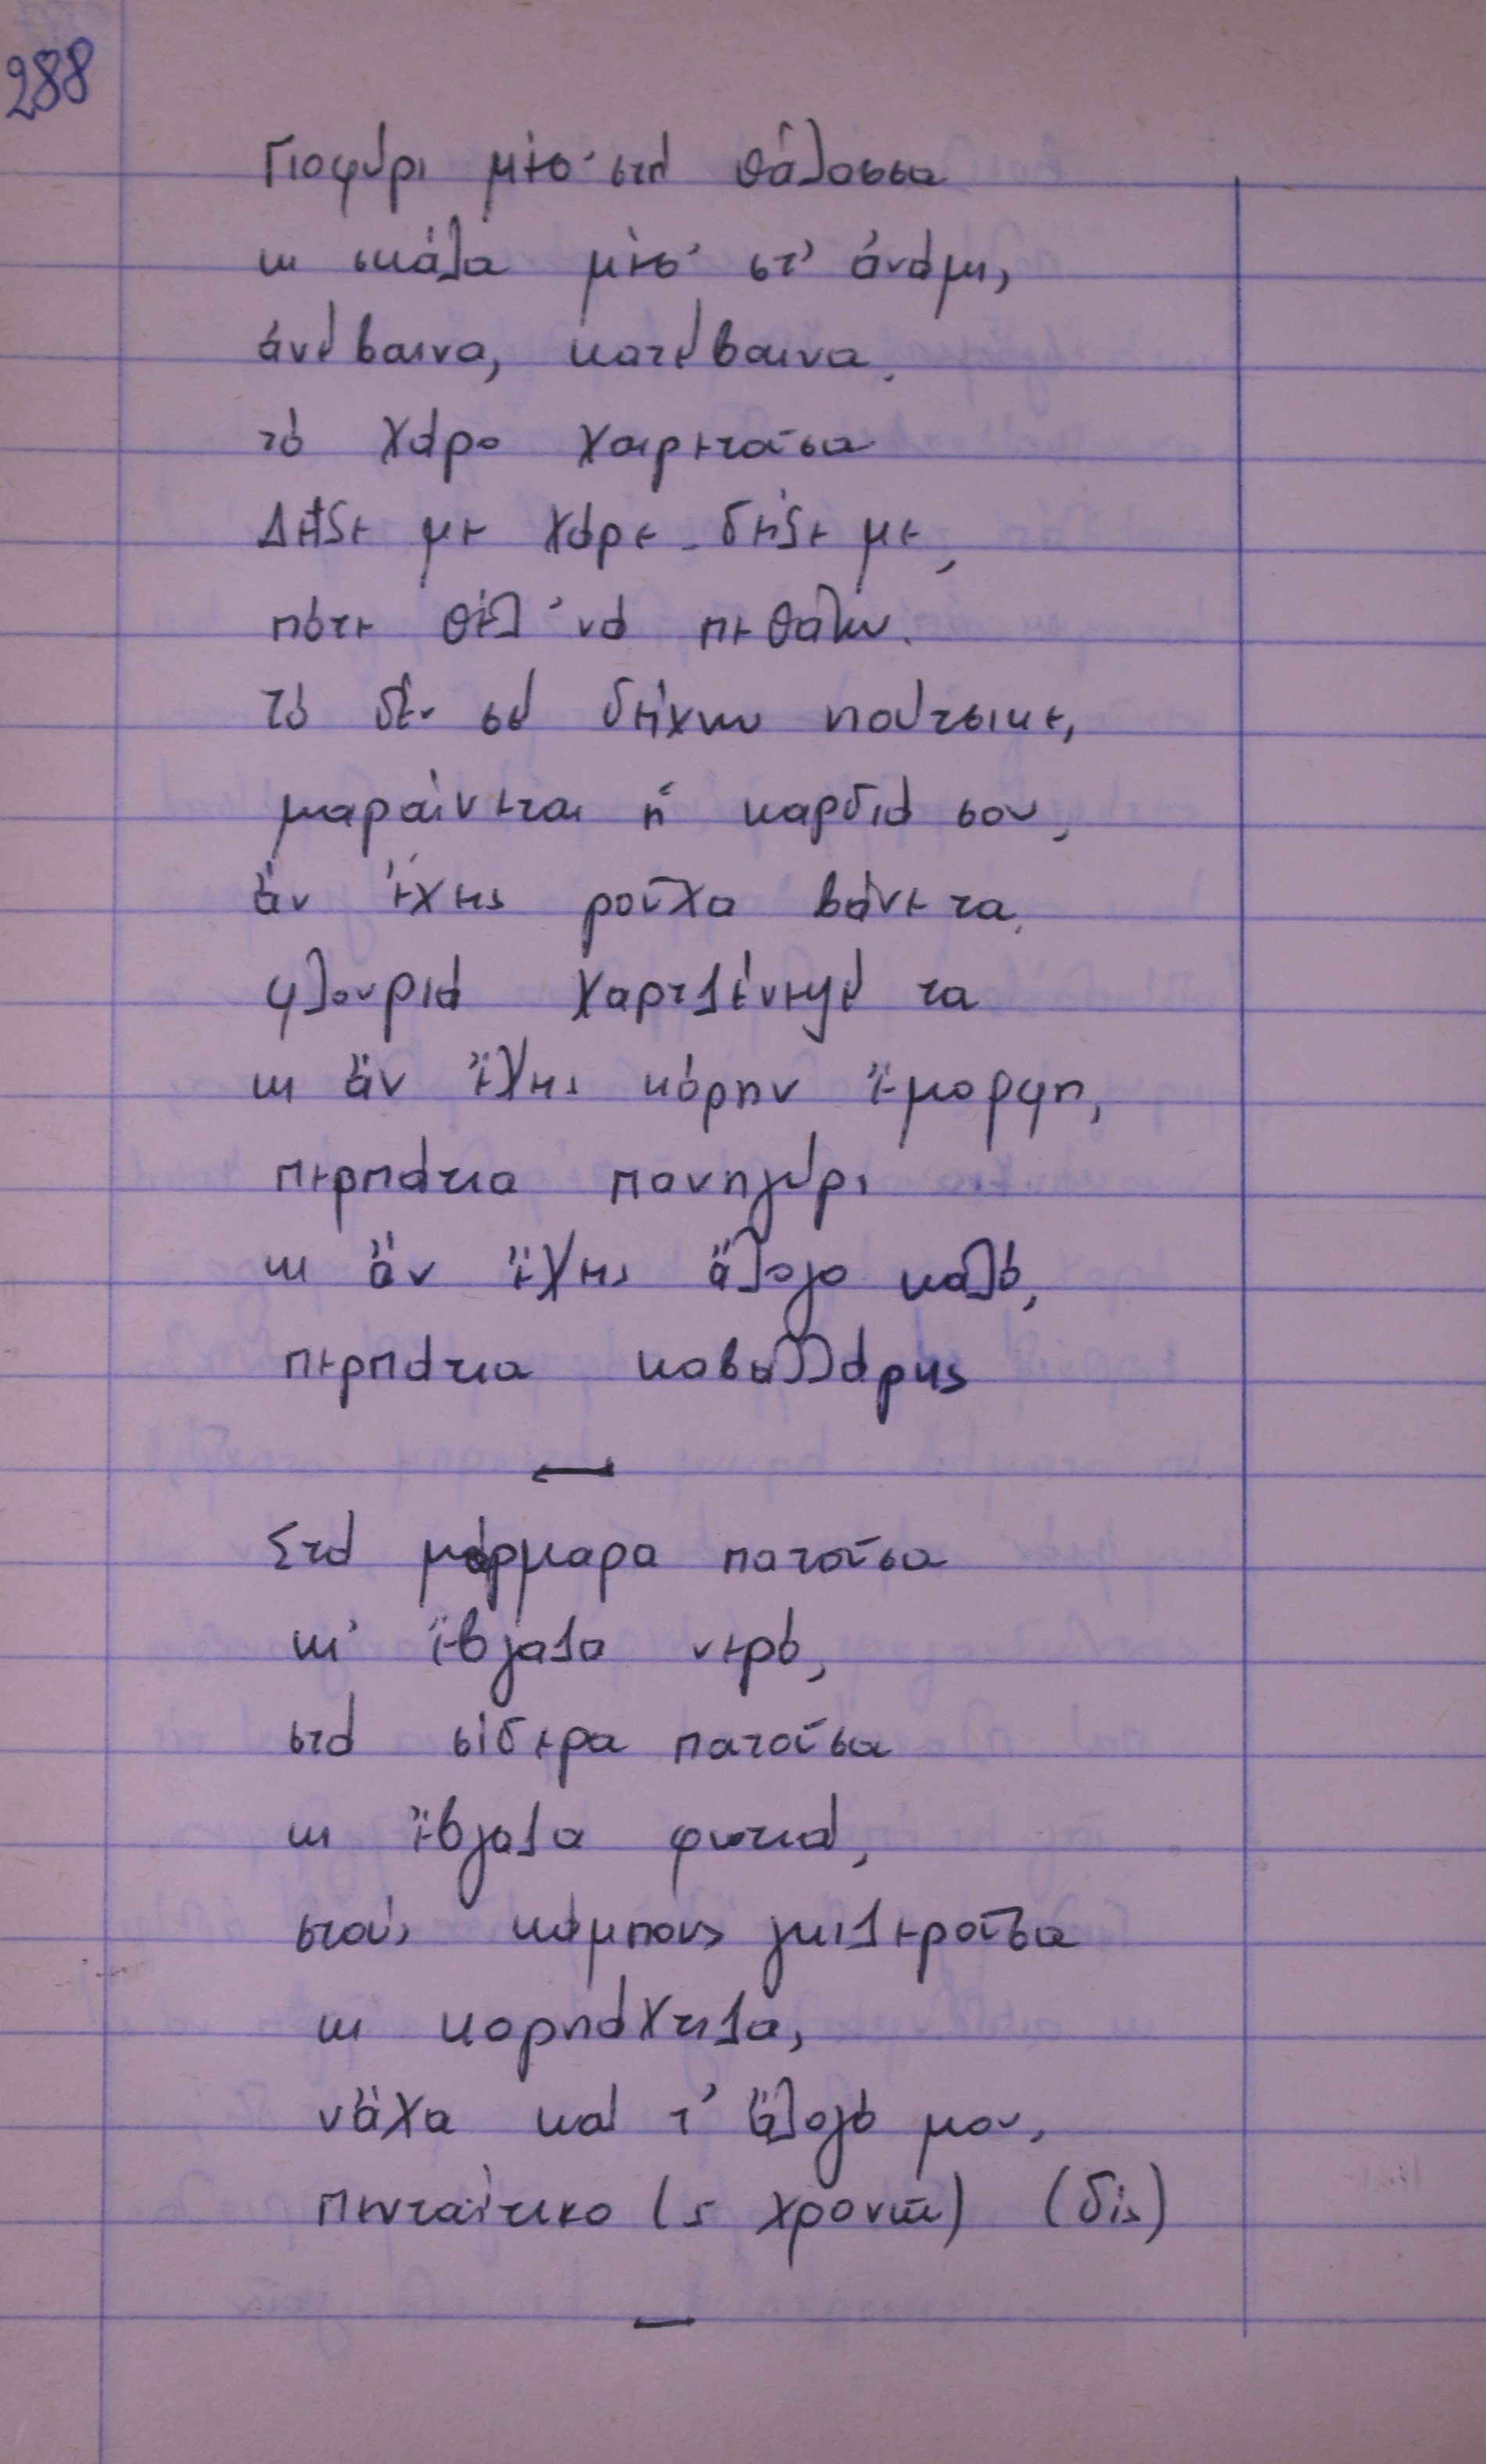 288
Γιοφύρι μέσ' στή θάλασσα
κι σκάλα μέσ' στ' ἀνάμι,
ἀνέβαινα, κατέβαινα,
τό Χάρο χαιρετοῦσα
Δεῖξε με Χάρε δεῖξε με,
πότε θέλ' νά πεθάνω.
Τό δέν σέ δείχνω πούτσικε,
μαραίνεται ἡ καρδιά σου,
ἄν ἔχης ροῦχα βάνε τα,
φλουριά χαρτζένεψέ τα
κι ἄν ἔχης κόρην ἔμορφη,
περπάτεια πανηγύρι
κι ἄν ἔχης ἄλογο καλό,
περπάτεια καβαλλάρης
Στά μάρμαρα πατοῦσα
κι' ἔβγαζα νερό,
στά σίδερα πατοῦσα
κι ἔβγαζα φωτιά,
στούς κάμπους γκιζεροῦσα
κι κορπάχτιζα,
νἄχα καί τ' ἄλογό μου,
πενταέτικο (5 χρονῶ) (δίς)